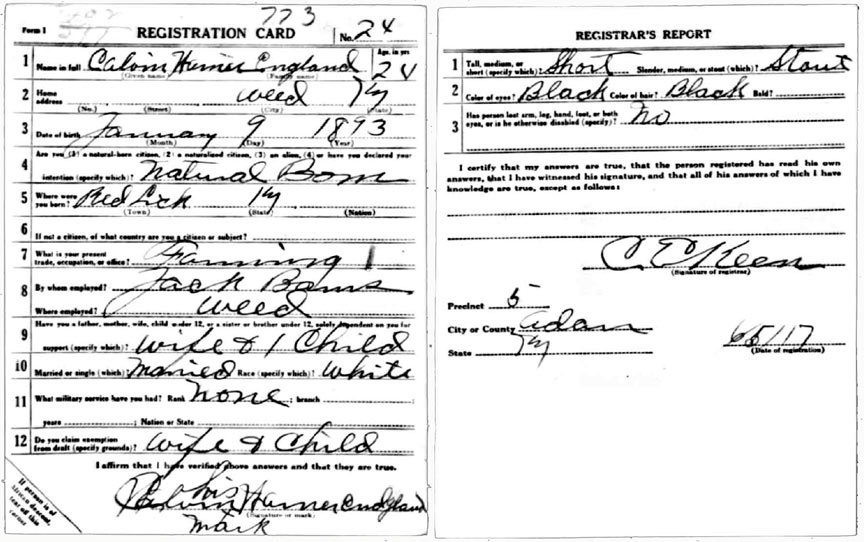 773
Form 1 REGISTRATION CARD No. 24
1 Name in full Calvin Homer England Age, in yrs 24
(Given name) (Family name)
2 Home address Weed Ky
(No.) (Street) (City) (State)
3 Date of birth January 9 1893
(Month) (Day) (Year)
4 Are you (1) a natural-born citizen, (2) a naturalized citizen, (3) an alien, (4) or have you declared your
intention (specify which)? Natural Born
5 Where were you born? Red Lick Ky
(Town) (State) (Nation)
6 If not a citizen, of what country are you a citizen or subject?
7 What is your present trade, occupation, or office? Farming 1
8 By whom employed? Jack
Where employed? Weed
9 Have you a father, mother, wife, child under 12, or a sister or brother under 12, solely dependent on you for
support (specify which)? Wife & 1 Child
10 Married or single (which)? Married Race (specify which)? White
11 What military service have you had? Rank None ; branch
years ; Nation or State
12 Do you claim exemption from draft (specify grounds)? Wife & Child
I affirm that I have verified above answers and that they are true.
his
Calvin Homer England
(Signature or mark)
mark
If person is of African descent, tear off this corner
REGISTRAR'S REPORT
1 Tall, medium, or short (specify which)? Short Slender, medium, or stout (which)? Stout
2 Color of eyes? Black Color of hair? Black Bald?
3 Has person lost arm, leg, hand, foot, or both eyes, or is he otherwise disabled (specify)? No
I certify that my answers are true, that the person registered has read his own
answers, that I have witnessed his signature, and that all of his answers of which I have
knowledge are true, except as follows:
C E Keen
(Signature of registrar)
Precinct 5
City or County Adair
State Ky
6/5/17
(Date of registration)